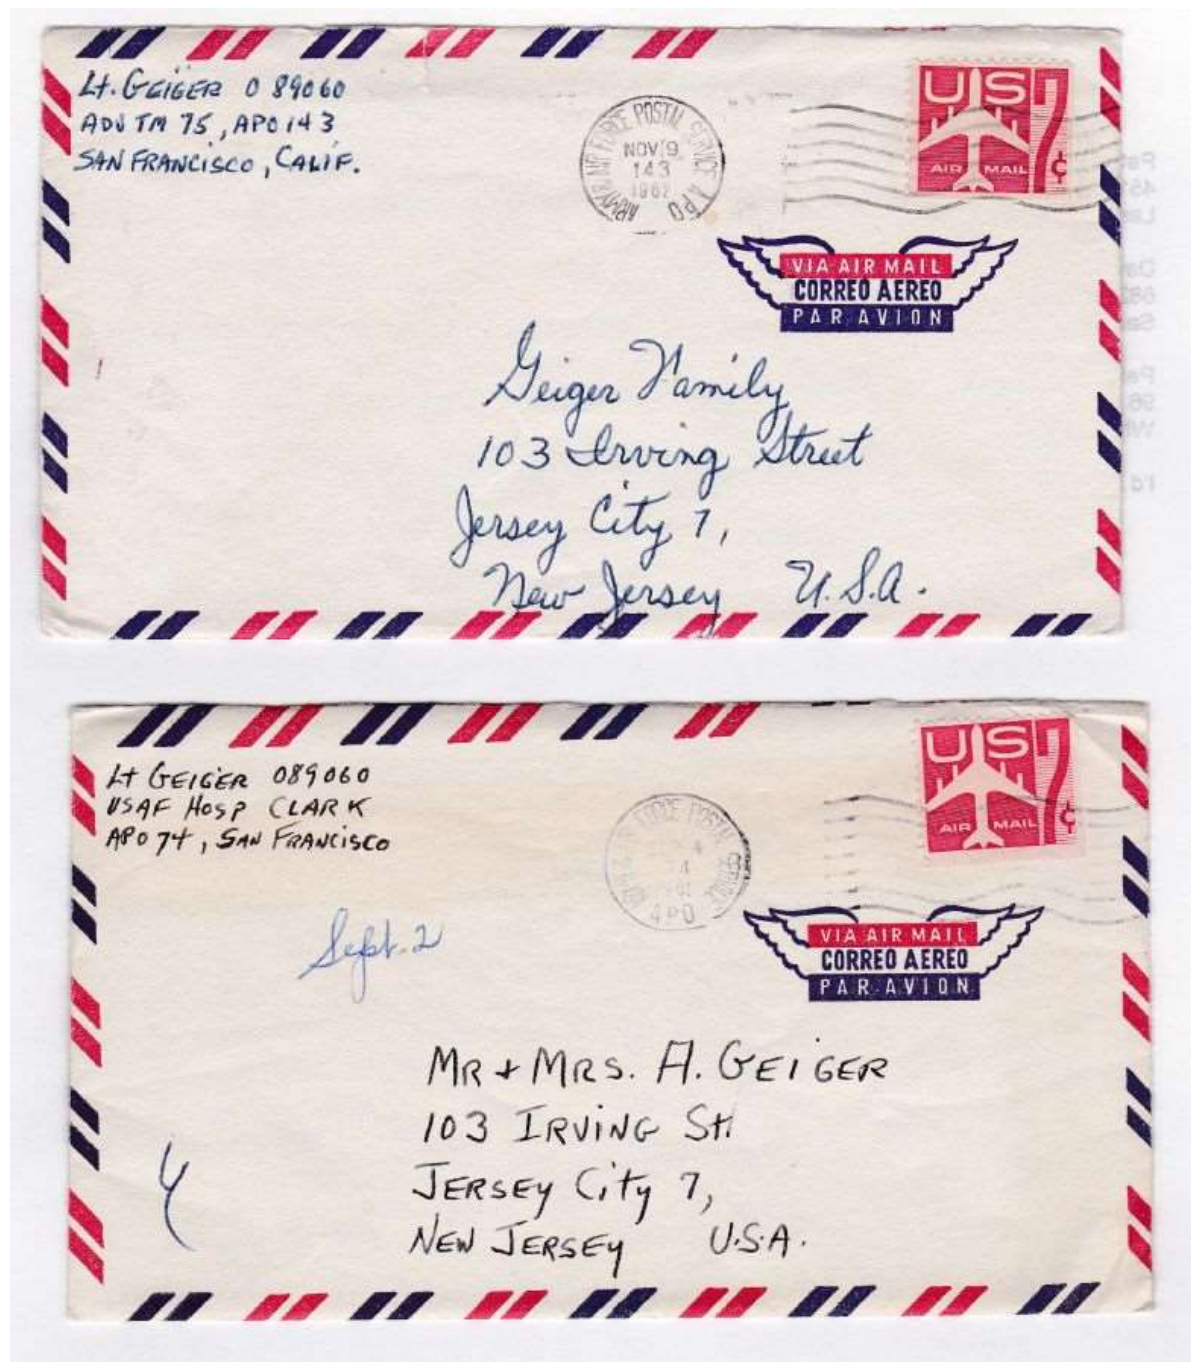 Lt. GEIGER O 89060
ADV TM 75, APO 143
SAN FRANCISCO, CALIF.
ARMY & AIR FORCE POSTAL SERVICE APO
NOV 9
143
1962
US 7¢
AIR MAIL
VIA AIR MAIL
CORREO AEREO
PAR AVION
Geiger Family
103 Irving Street
Jersey City 7,
New Jersey U.S.A.
Lt GEIGER 089060
USAF HOSP CLARK
APO 74, SAN FRANCISCO
FORCE POSTAL SERVICE
74
APO
US 7¢
AIR MAIL
VIA AIR MAIL
CORREO AEREO
PAR AVION
Sept. 2
MR + MRS. A. GEIGER
103 IRVING St.
JERSEY City 7,
NEW JERSEY U.S.A.